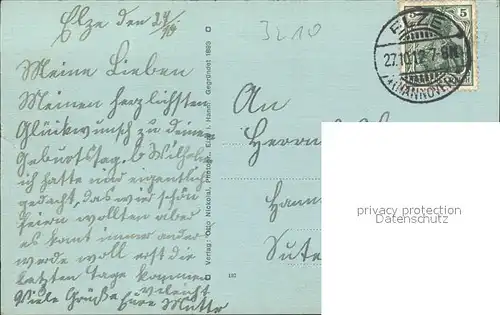 Elze den 27/10
3210
Meine Lieben
Meinen herzlichsten
Glückwunsch zu deinem
Geburtstag. b Wilhelm
ich hatte nur eigentlich
gedacht, das wir schön
feiern wollten aber
es kömt immer anders
werde woll erst die
letzten tage kommen
veleicht
Viele Grüße Eure Mutter
Verlag: Otto Nickolai, Photogr. Elze i. Hann. Gegründet 1893
An
Herrn
Hann
Sute
ELZE
27.10.12.7-8N
*(HANNOVER)
5
privacy protection
Datenschutz